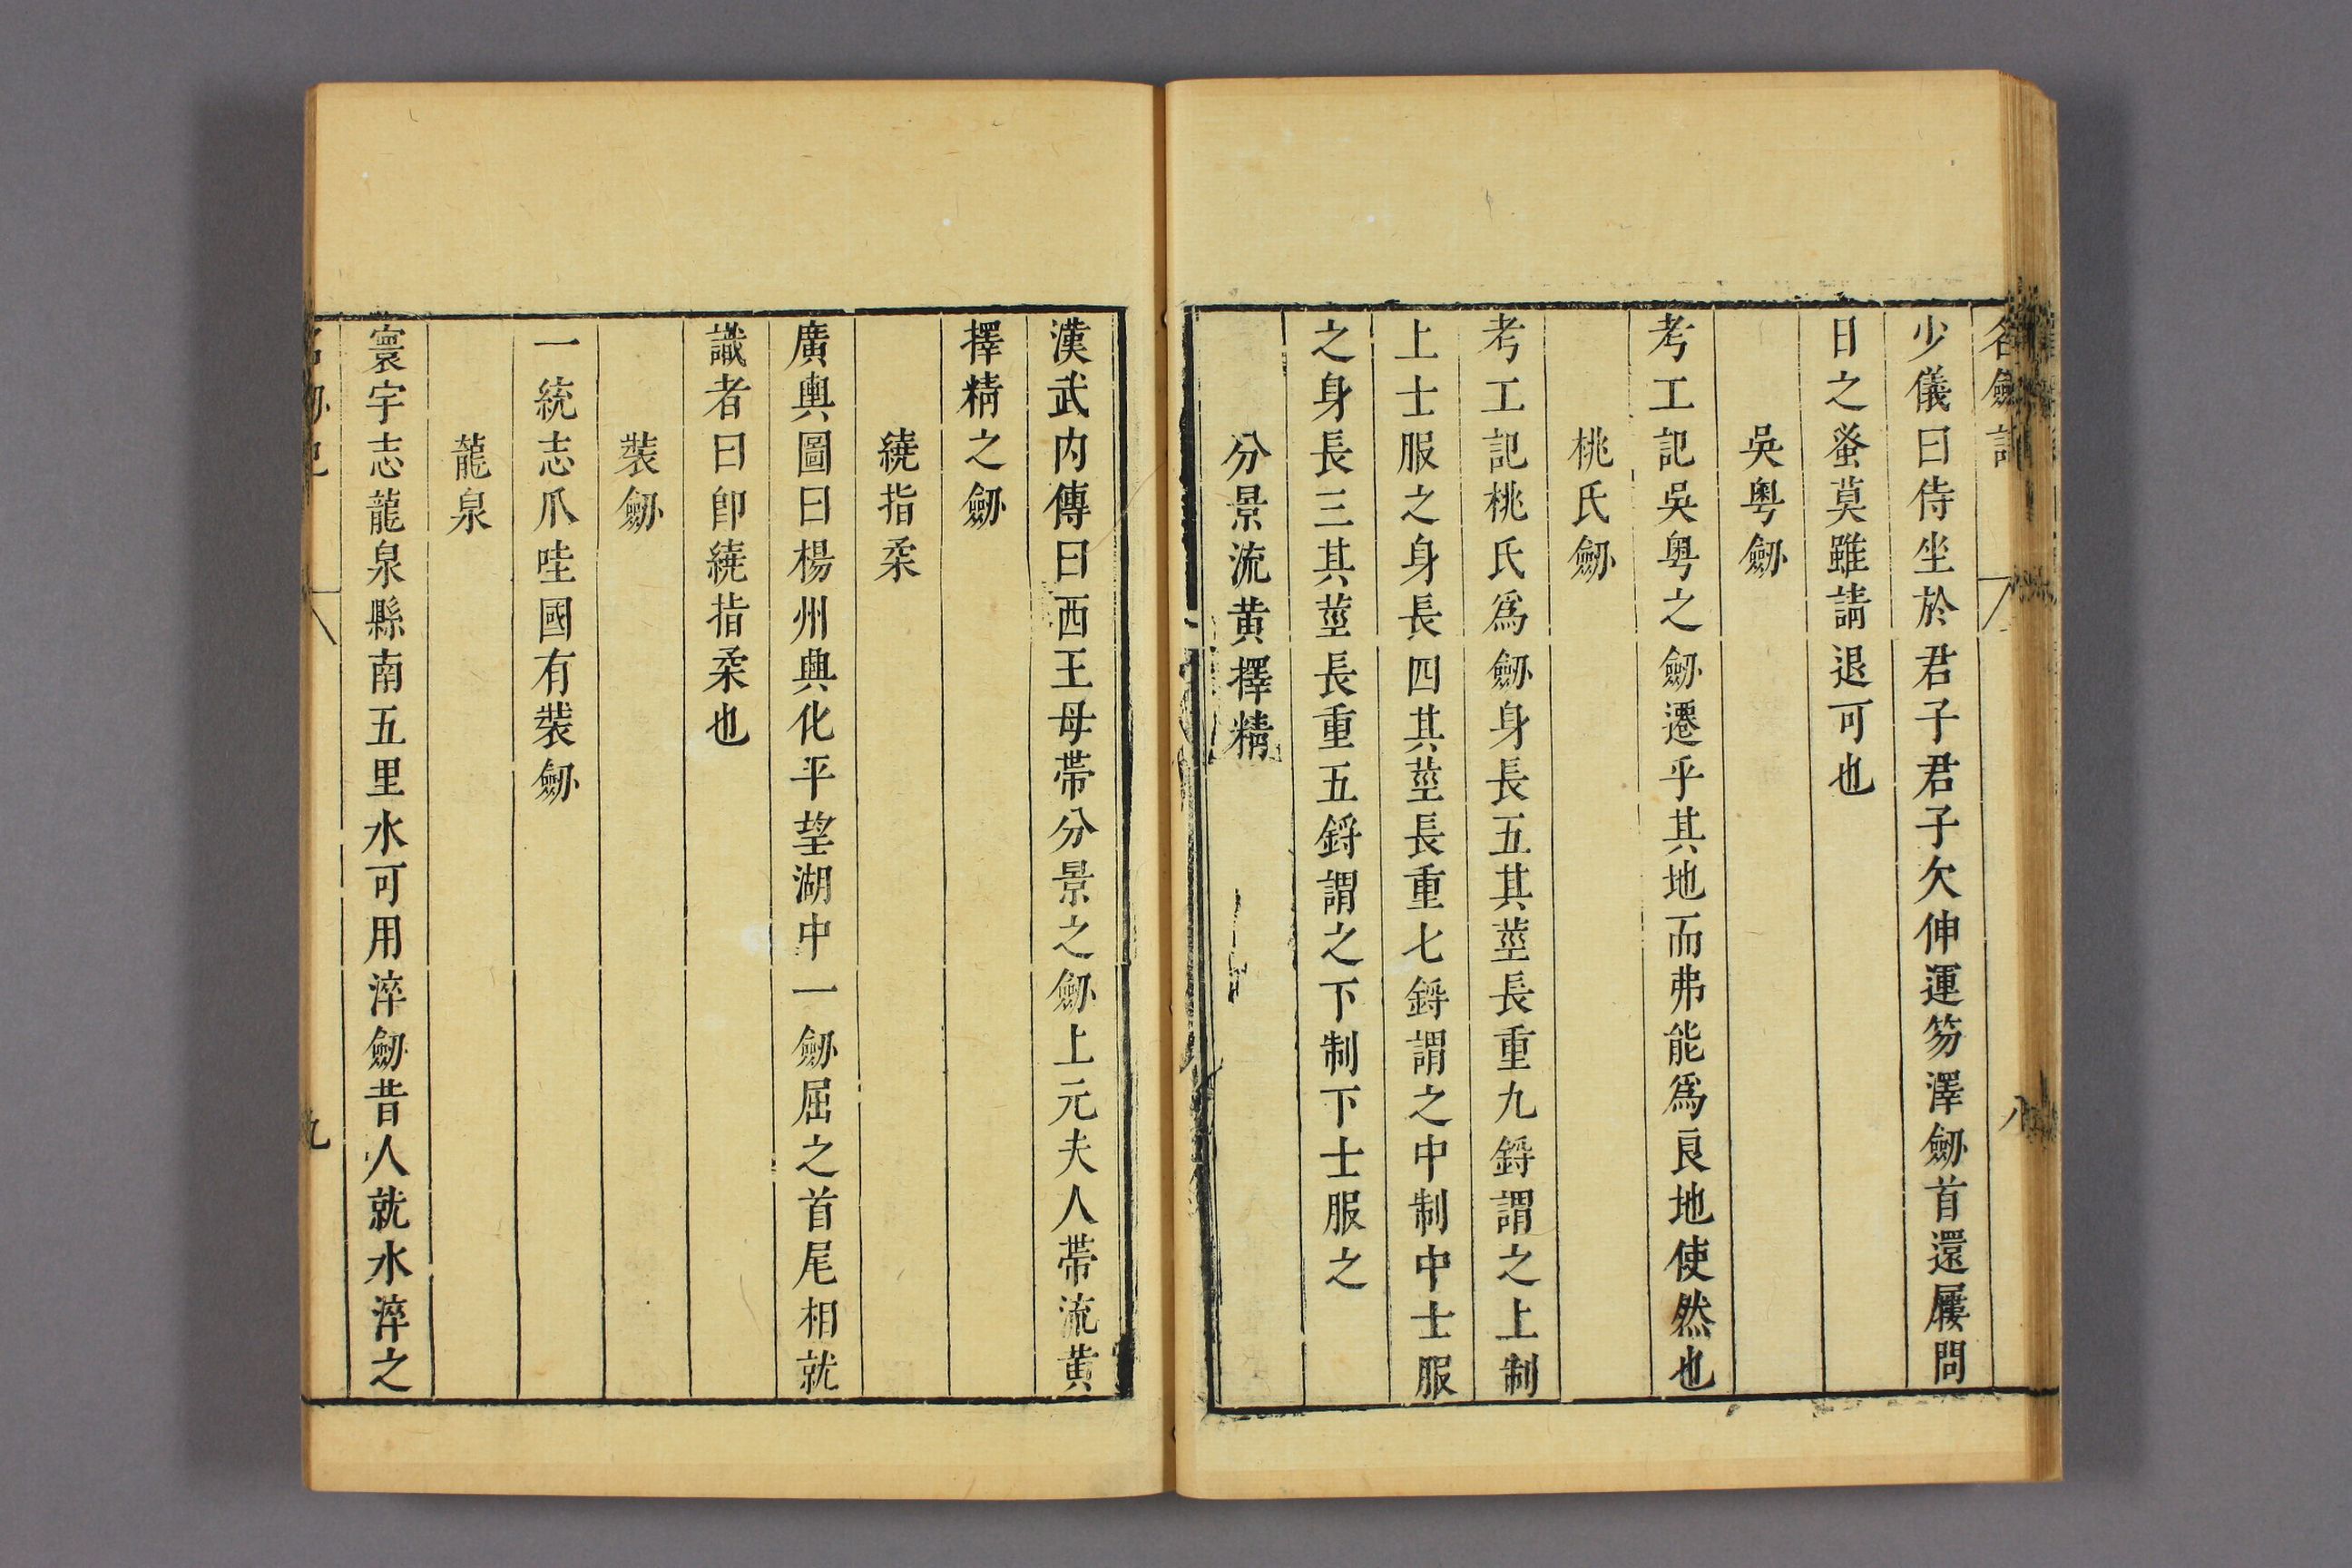 名劒記
八
少儀曰侍坐於君子君子欠伸運笏澤劒首還屨問
日之蚤莫雖請退可也
吳粤劒
考工記吳粤之劒遷乎其地而弗能爲良地使然也
桃氏劒
考工記桃氏爲劒身長五其莖長重九鋝謂之上制
上士服之身長四其莖長重七鋝謂之中制中士服
之身長三其莖長重五鋝謂之下制下士服之
分景流黄擇精
漢武内傳曰西王母帶分景之劒上元夫人帶流黄
擇精之劒
繞指柔
廣輿圖曰楊州興化平望湖中一劒屈之首尾相就
識者曰卽繞指柔也
裝劒
一統志爪哇國有裝劒
龍泉
寰宇志龍泉縣南五里水可用淬劒昔人就水淬之
九